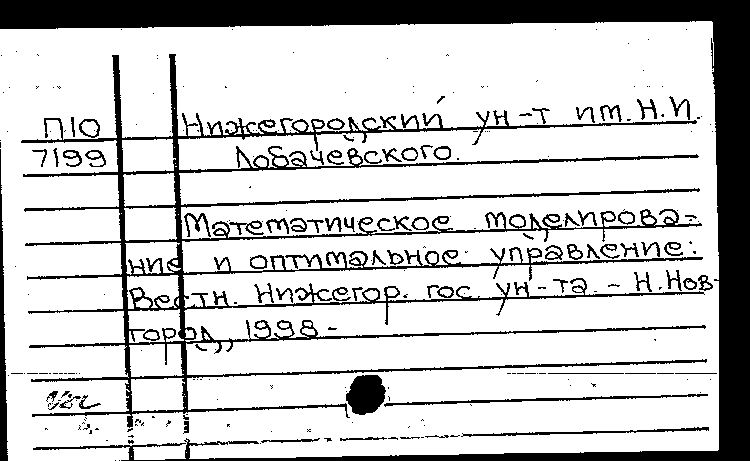 П10 Нижегородский ун-т им. Н.И.
7199 Лобачевского.
Математическое моделирова-
ние и оптимальное управление:
Вестн. Нижегор. гос. ун-та. - Н.Нов-
город, 1998-